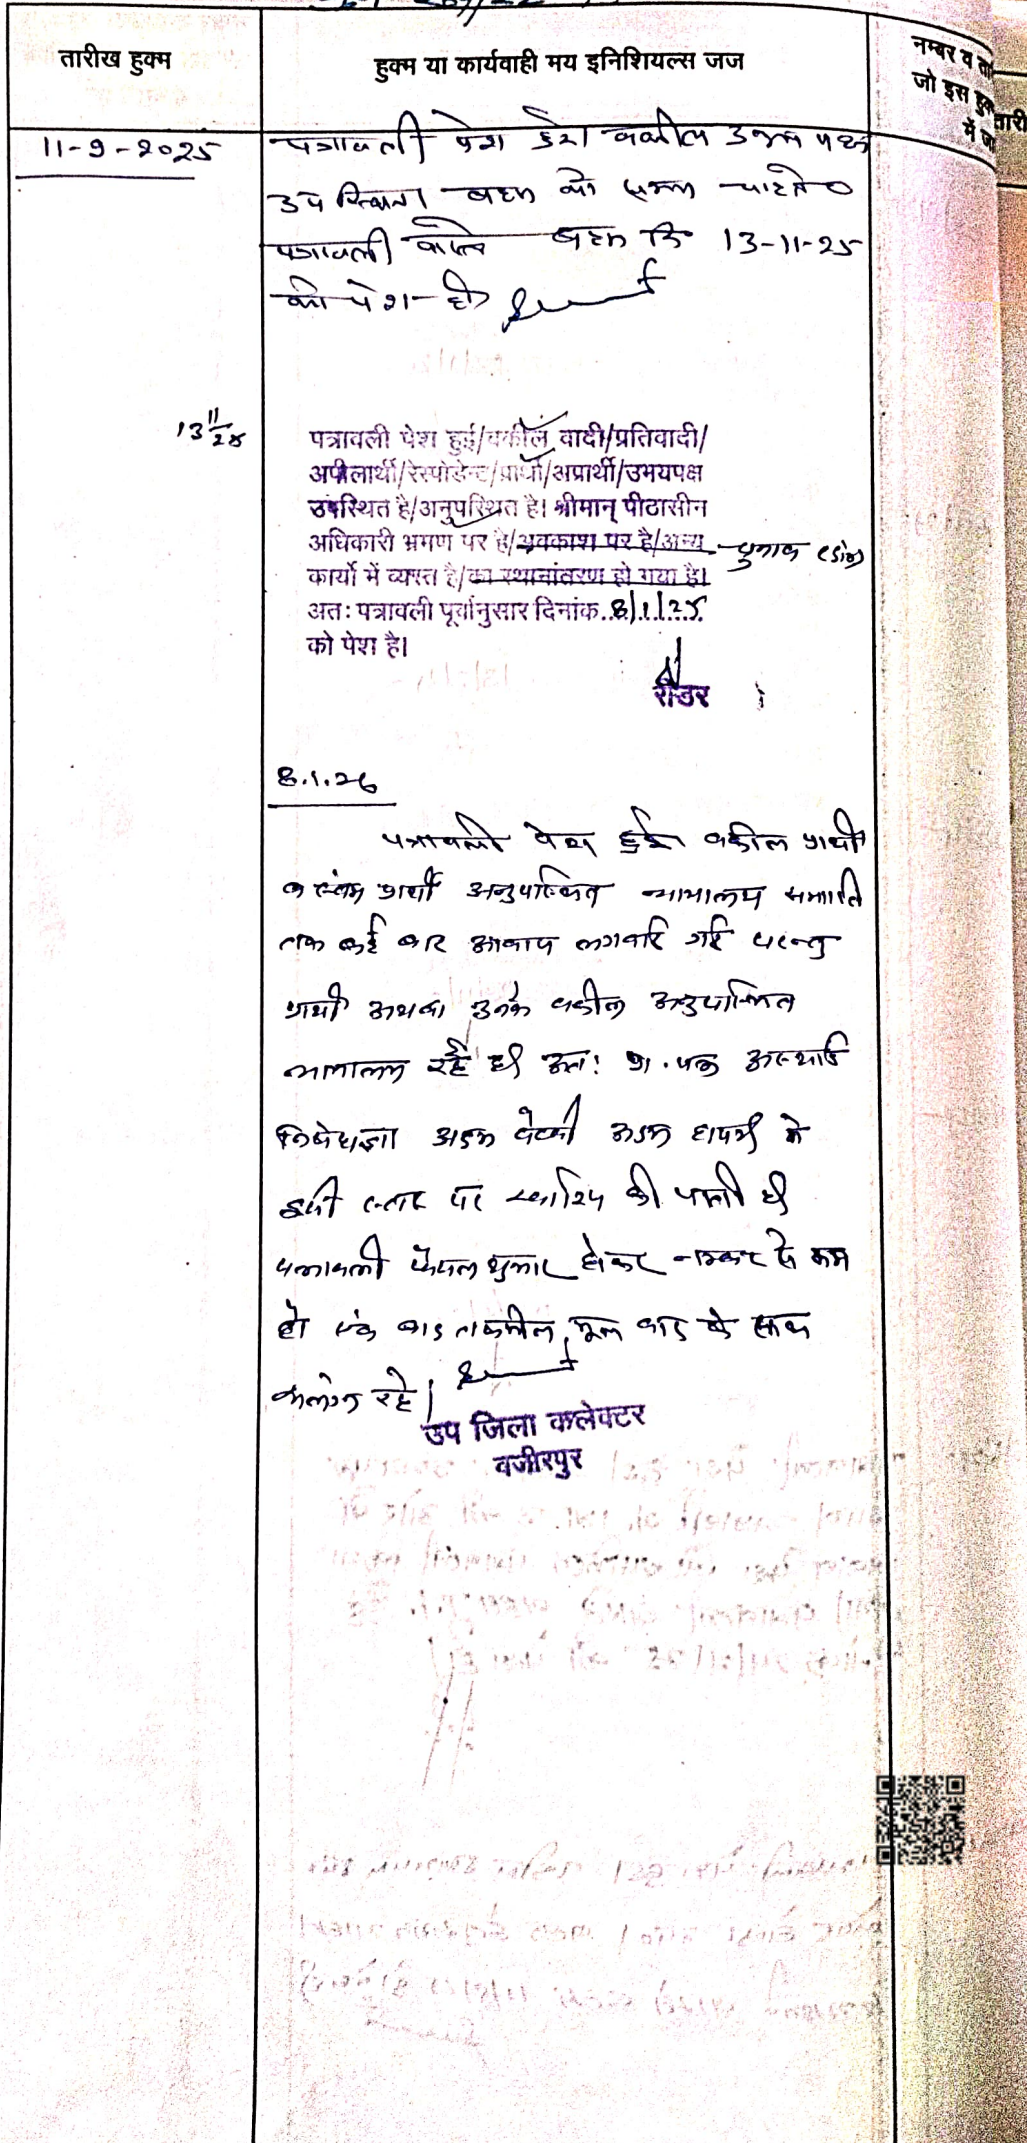 तारीख हुक्म
हुक्म या कार्यवाही मय इनिशियल्स जज
नम्बर व ता
जो इस हुक
में जा
तारी
11-9-2025
पत्रावली पेश हुई। वकील उभय पक्ष
उपस्थित। बहस को समय चाहते
पत्रावली वास्ते बहस दि 13-11-25
को पेश हो
13 11/25
पत्रावली पेश हुई/वकील वादी/प्रतिवादी/
अपीलार्थी/रेस्पोडेन्ट/प्रार्थी/अप्रार्थी/उभयपक्ष
उपस्थित है/अनुपस्थित है। श्रीमान् पीठासीन
अधिकारी भ्रमण पर है/अवकाश पर है/अन्य
कार्यो में व्यस्त है/का स्थानांतरण हो गया है।
अतः पत्रावली पूर्वानुसार दिनांक..8/1/25
को पेश है।
रीडर
8.1.26
पत्रावली पेश हुई। वकील प्रार्थी
व स्वंय प्रार्थी अनुपस्थित न्यायालय समाप्ति
तक कई बार आवाज लगवाई गई परन्तु
प्रार्थी अथवा उनके वकील अनुपस्थित
न्यायालय रहे है अतः प्रा. पत्र अस्थाई
निषेधाज्ञा अदम पैरवी अदम हाजरी मे
इसी स्तर पर खारिज की जाती है
पत्रावली फैसल शुमार होकर नम्बर से कम
हो बाद तकमील मूल वाद के साथ
संलग्न रहे।
उप जिला कलेक्टर
वजीरपुर